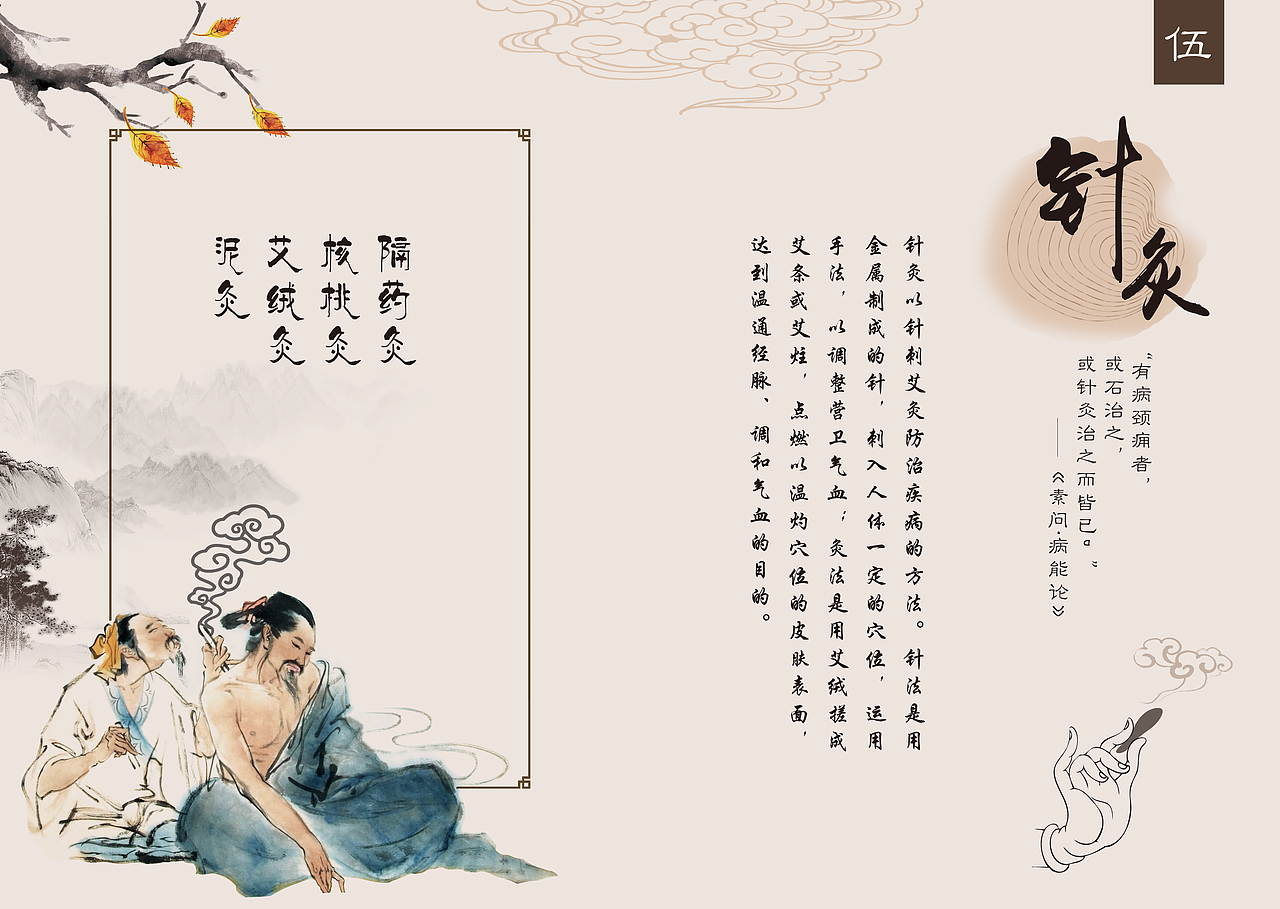 伍
针灸
“有病颈痈者，
或石治之，
或针灸治之而皆已。”
——《素问·病能论》
针灸以针刺艾灸防治疾病的方法。针法是用
金属制成的针，刺入人体一定的穴位，运用
手法，以调整营卫气血；灸法是用艾绒搓成
艾条或艾炷，点燃以温灼穴位的皮肤表面，
达到温通经脉、调和气血的目的。
隔药灸
核桃灸
艾绒灸
泥灸